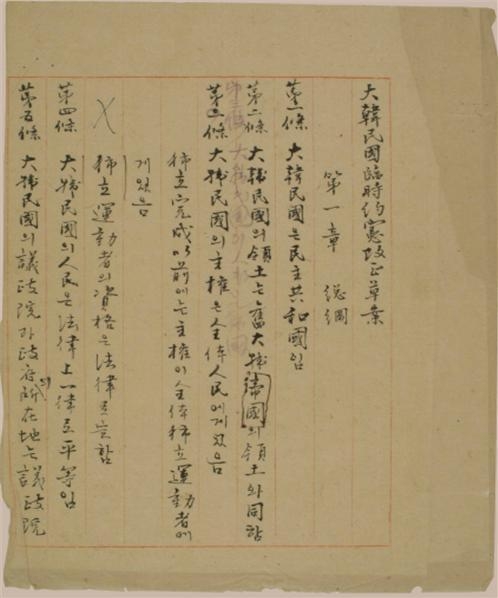 大韓民國臨時約憲改正草案
第一章 総綱
第一條 大韓民國은民主共和國임
第二條 大韓民國의領土는舊大韓帝國의領土와同함
第三條 大韓民國의主權은全体人民에게있음
独立完成以前에는主權이全体独立運動者에
게있음
独立運動者의資格은法律로定함
第四條 大韓民國의人民은法律上一律로平等임
第五條 大韓民國의議政院과政府의所在地는議政院